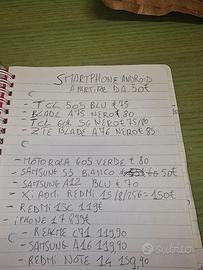 SMARTPHONE ANDROID
A PARTIRE DA 50€
- TCL 505 BLU €75
- BLADE A75 NERO €80
- TCL 5G NERO €75/80
- ZTE BLADE A76 NERO €85
- MOTOROLA G05 VERDE €80
- SAMSUNG S3 BIANCO 50€
- SAMSUNG A12 BLU €70
- XIAOMI REDMI 15/8/256 - 150€
- REDMI 15C 119€
- IPHONE 17 899€
- REALME C71 119,90
- SAMSUNG A16 119,90
- REDMI NOTE 14 159,90
Subito